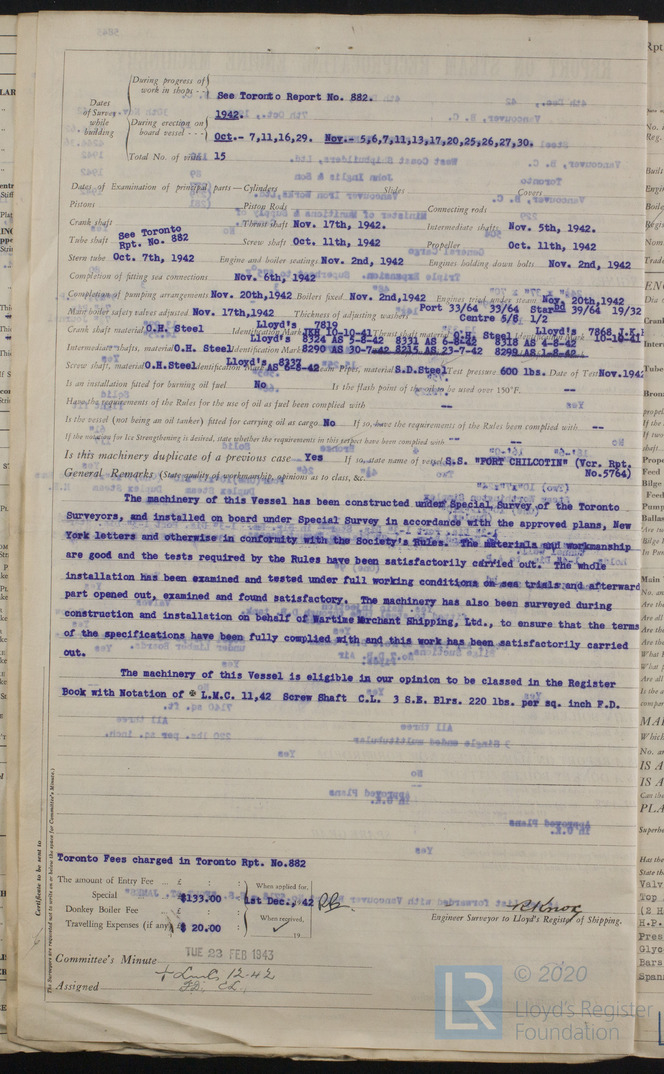 During progress of work in shops - - See Toronto Report No. 882.
Dates of Survey while building
1942.
During erection on board vessel - - - Oct.- 7,11,16,29. Nov.- 5,6,7,11,13,17,20,25,26,27,30.
Total No. of visits 15
Dates of Examination of principal parts—Cylinders Slides Covers
Pistons Piston Rods Connecting rods
Crank shaft Thrust shaft Nov. 17th, 1942. Intermediate shafts Nov. 5th, 1942.
Tube shaft See Toronto Rpt. No. 882 Screw shaft Oct. 11th, 1942 Propeller Oct. 11th, 1942
Stern tube Oct. 7th, 1942 Engine and boiler seatings Nov. 2nd, 1942 Engines holding down bolts Nov. 2nd, 1942
Completion of fitting sea connections Nov. 6th, 1942
Completion of pumping arrangements Nov. 20th,1942 Boilers fixed Nov. 2nd,1942 Engines tried under steam Nov. 20th,1942
Main boiler safety valves adjusted Nov. 17th,1942 Thickness of adjusting washers Port 33/64 33/64 Starbd 39/64 19/32
Centre 5/8 1/2
Crank shaft material O.H. Steel Identification Mark Lloyd's 7819 JKH 10-10-41 Thrust shaft material O.H. Steel Identification Mark Lloyd's 7868 10-10-41
Intermediate shafts, material O.H. Steel Identification Marks Lloyd's 8324 AS 5-8-42 8331 AS 6-8-42 8318 AS 4-8-42
8290 AS 30-7-42 8215 AS 23-7-42 8299 AS 1-8-42
Screw shaft, material O.H.Steel Identification Mark Lloyd's 8337 AS 6-8-42 Steam Pipes, material S.D.Steel Test pressure 600 lbs. Date of Test Nov.1942
Is an installation fitted for burning oil fuel No Is the flash point of the oil to be used over 150°F. --
Have the requirements of the Rules for the use of oil as fuel been complied with --
Is the vessel (not being an oil tanker) fitted for carrying oil as cargo No If so, have the requirements of the Rules been complied with --
If the notation for Ice Strengthening is desired, state whether the requirements in this respect have been complied with --
Is this machinery duplicate of a previous case Yes If so, state name of vessel S.S. "FORT CHILCOTIN" (Vcr. Rpt. No.5764)
General Remarks (State quality of workmanship, opinions as to class, &c.
The machinery of this Vessel has been constructed under Special Survey of the Toronto
Surveyors, and installed on board under Special Survey in accordance with the approved plans, New
York letters and otherwise in conformity with the Society's Rules. The materials and workmanship
are good and the tests required by the Rules have been satisfactorily carried out. The whole
installation has been examined and tested under full working conditions on sea trials and afterward
part opened out, examined and found satisfactory. The machinery has also been surveyed during
construction and installation on behalf of Wartime Merchant Shipping, Ltd., to ensure that the terms
of the specifications have been fully complied with and this work has been satisfactorily carried
out.
The machinery of this Vessel is eligible in our opinion to be classed in the Register
Book with Notation of ✠ L.M.C. 11,42 Screw Shaft C.L. 3 S.E. Blrs. 220 lbs. per sq. inch F.D.
Certificate to be sent to
The Surveyors are requested not to write on or below the space for Committee's Minute.
Toronto Fees charged in Toronto Rpt. No.882
The amount of Entry Fee ... £ : : When applied for,
Special $133.00 1st Dec., 42
Donkey Boiler Fee £ : : When received,
Travelling Expenses (if any) £ 20.00 19
R Knox
Engineer Surveyor to Lloyd's Register of Shipping.
Committee's Minute TUE 23 FEB 1943
Assigned + Lmc 12-42
FD. CL.
© 2020
LR
Lloyd's Register
Foundation